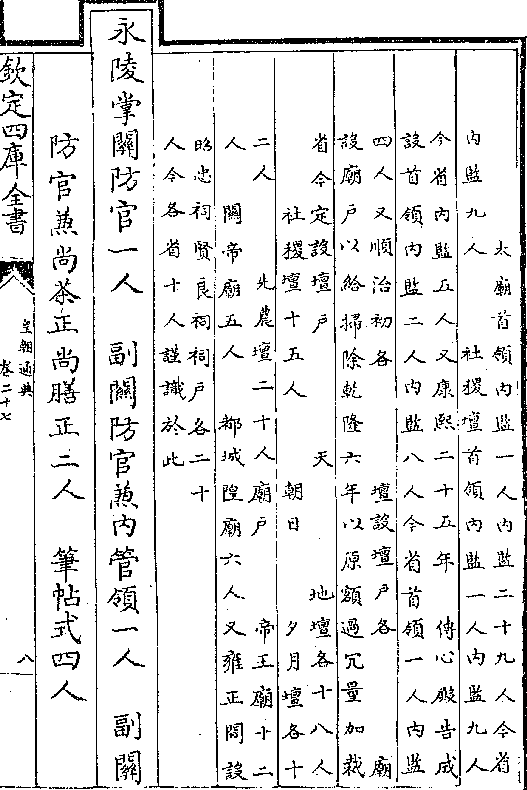 太廟首領内監一人内監二十九人今省
内監九人 社稷壇首領内監一人内監九人
今省内監五人又康熙二十五年 傳心殿告成
設首領内監二人内監八人今省首領一人内監
四人又順治初各 壇設壇户各 廟
設廟户以給掃除乾隆六年以原額過冗量加裁
省今定設壇户 天 地壇各十八人
社稷壇十五人 朝日 夕月壇各十
二人 先農壇二十人廟户 帝王廟十二
人 關帝廟五人 都城隍廟六人又雍正間設
昭忠祠賢良祠祠户各二十
人今各省十人謹識於此
永陵掌關防官一人 副關防官兼内管領一人 副關
防官兼尚茶正尚膳正二人 筆帖式四人
欽定四庫全書
皇朝通典
卷二十七
八